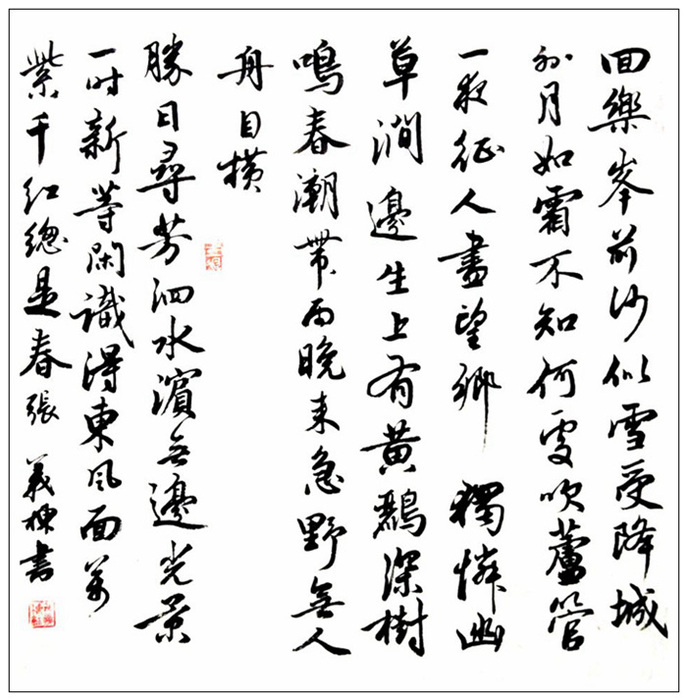 回樂峯前沙似雪受降城
外月如霜不知何處吹蘆管
一夜征人盡望鄉 獨憐幽
草澗邊生上有黃鸝深樹
鳴春潮帶雨晚來急野無人
舟自橫
勝日尋芳泗水濱无邊光景
一時新等閑識得東風面萬
紫千紅總是春張義棟書